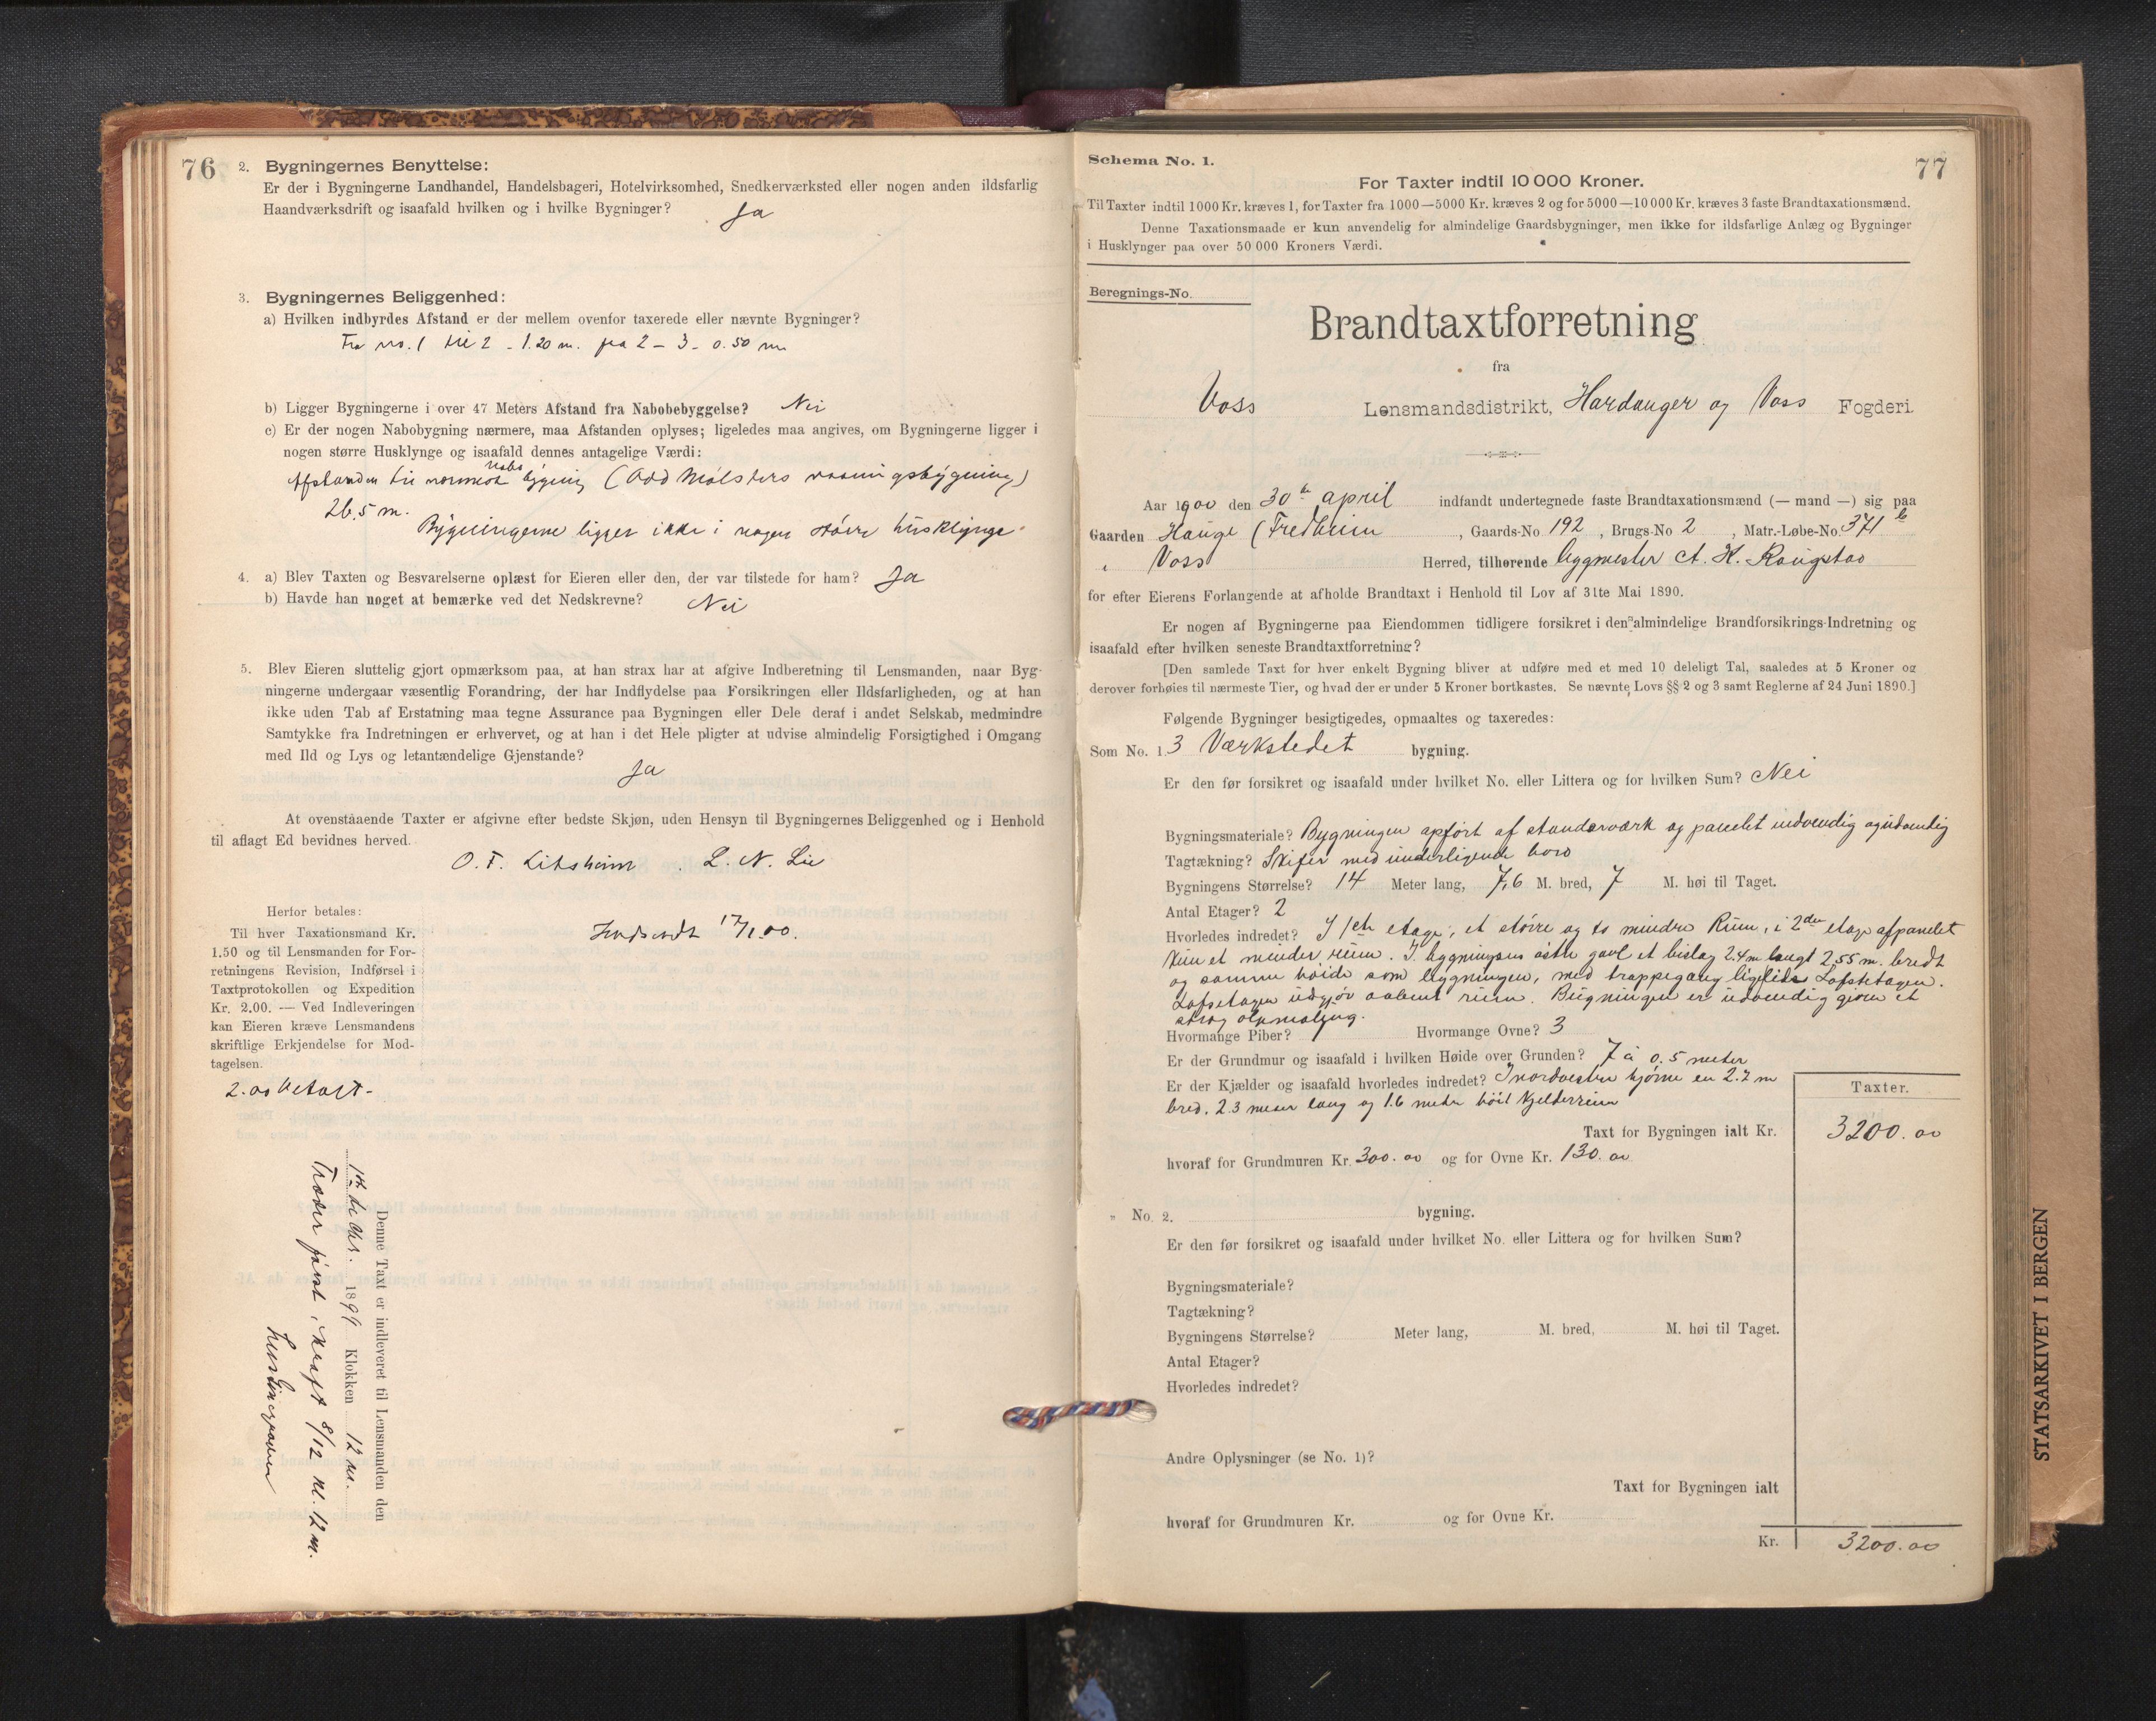 76
2. Bygningernes Benyttelse:
Er der i Bygningerne Landhandel, Handelsbageri, Hotelvirksomhed, Snedkerværksted eller nogen anden ildsfarlig
Haandværksdrift og isaafald hvilken og i hvilke Bygninger? Ja
3. Bygningernes Beliggenhed:
a) Hvilken indbyrdes Afstand er der mellem ovenfor taxerede eller nævnte Bygninger?
Fra no. 1 til 2 - 1.20 m. fra 2 - 3 - 0.50 m
b) Ligger Bygningerne i over 47 Meters Afstand fra Nabobebyggelse? Nei
c) Er der nogen Nabobygning nærmere, maa Afstanden oplyses; ligeledes maa angives, om Bygningerne ligger i
nogen større Husklynge og isaafald dennes antagelige Værdi:
Afstanden til nærmeste nabobygning (Odd Mølsters vaaningsbygning)
26,5 m.
Bygningerne ligger ikke i nogen større husklynge
4. a) Blev Taxten og Besvarelserne oplæst for Eieren eller den, der var tilstede for ham? Ja
b) Havde han noget at bemærke ved det Nedskrevne? Nei
5. Blev Eieren sluttelig gjort opmærksom paa, at han strax har at afgive Indberetning til Lensmanden, naar Byg-
ningerne undergaar væsentlig Forandring, der har Indflydelse paa Forsikringen eller Ildsfarligheden, og at han
ikke uden Tab af Erstatning maa tegne Assurance paa Bygningen eller Dele deraf i andet Selskab, medmindre
Samtykke fra Indretningen er erhvervet, og at han i det Hele pligter at udvise almindelig Forsigtighed i Omgang
med Ild og Lys og letantændelige Gjenstande?
Ja
At ovenstaaende Taxter er afgivne efter bedste Skjøn, uden Hensyn til Bygningernes Beliggenhed og i Henhold
til aflagt Ed bevidnes herved.
O. T. Litsheim L. N. Lie
Herfor betales:
Til hver Taxationsmand Kr.
1.50 og til Lensmanden for For-
retningens Revision, Indførsel i
Taxtprotokollen og Expedition
Kr. 2.00. — Ved Indleveringen
kan Eieren kræve Lensmandens
skriftlige Erkjendelse for Mod-
tagelsen.
Indsendt 17/1.00.
2.00 betalt-
Denne Taxt er indleveret til Lensmanden den
1899 Klokken 12 m.
Træder først i Kraft 8/12 kl. 12 m.
77
Schema No. 1.
For Taxter indtil 10 000 Kroner.
Til Taxter indtil 1000 Kr. kræves 1, for Taxter fra 1000—5000 Kr. kræves 2 og for 5000—10 000 Kr. kræves 3 faste Brandtaxationsmænd.
Denne Taxationsmaade er kun anvendelig for almindelige Gaardsbygninger, men ikke for ildsfarlige Anlæg og Bygninger
i Husklynger paa over 50 000 Kroners Værdi.
Beregnings-No.
Brandtaxtforretning
fra
Voss Lensmandsdistrikt, Hardanger og Voss Fogderi.
Aar 1900 den 30te april indfandt undertegnede faste Brandtaxationsmænd (— mand —) sig paa
Gaarden Hauge (Fredheim , Gaards-No 192 , Brugs-No 2 , Matr.-Løbe-No. 371 b
Voss Herred, tilhørende bygmester A. K. Rongstad
for efter Eierens Forlangende at afholde Brandtaxt i Henhold til Lov af 31te Mai 1890.
Er nogen af Bygningerne paa Eiendommen tidligere forsikret i den almindelige Brandforsikrings-Indretning og
isaafald efter hvilken seneste Brandtaxtforretning?
[Den samlede Taxt for hver enkelt Bygning bliver at udføre med et med 10 deleligt Tal, saaledes at 5 Kroner og
derover forhøies til nærmeste Tier, og hvad der er under 5 Kroner bortkastes. Se nævnte Lovs §§ 2 og 3 samt Reglerne af 24 Juni 1890.]
Følgende Bygninger besigtigedes, opmaaltes og taxeredes:
Som No. 1. 3 Værkstedet bygning.
Er den før forsikret og isaafald under hvilket No. eller Littera og for hvilken Sum? Nei
Bygningsmateriale? Bygningen opført af standerværk og panelet indvendig og udvendig
Tagtækning? Skifer med underliggende bord
Bygningens Størrelse? 14 Meter lang, 7,6 M. bred, 7 M. høi til Taget.
Antal Etager? 2
Hvorledes indredet? I 1ste etage, et større og to mindre Rum, i 2den etage afpanelet
kun et mindre rum. I bygningens østre gavl et bislag 2.4 m langt 2,55 m. bredt
og samme høide som bygningen, med trappegang ligeledes Loftsetagen.
Loftsetagen udgjør aabent rum. Bygningen er udvendig given et
strøg oljemaling.
Hvormange Piber? 1 Hvormange Ovne? 3
Er der Grundmur og isaafald i hvilken Høide over Grunden? 7 à 0.5 meter
Er der Kjælder og isaafald hvorledes indredet? I nordvestre hjørne en 2.7 m
bred, 2.3 meter lang og 1.6 meter høit kjelderrum
Taxter.
Taxt for Bygningen ialt Kr. 3200.00
hvoraf for Grundmuren Kr. 300.00 og for Ovne Kr. 130.00
„ No. 2. bygning.
Er den før forsikret og isaafald under hvilket No. eller Littera og for hvilken Sum?
Bygningsmateriale?
Tagtækning?
Bygningens Størrelse? Meter lang, M. bred, M. høi til Taget.
Antal Etager?
Hvorledes indredet?
Andre Oplysninger (se No. 1)?
Taxt for Bygningen ialt
hvoraf for Grundmuren Kr. og for Ovne Kr.
Kr. 3200.00
STATSARKIVET I BERGEN